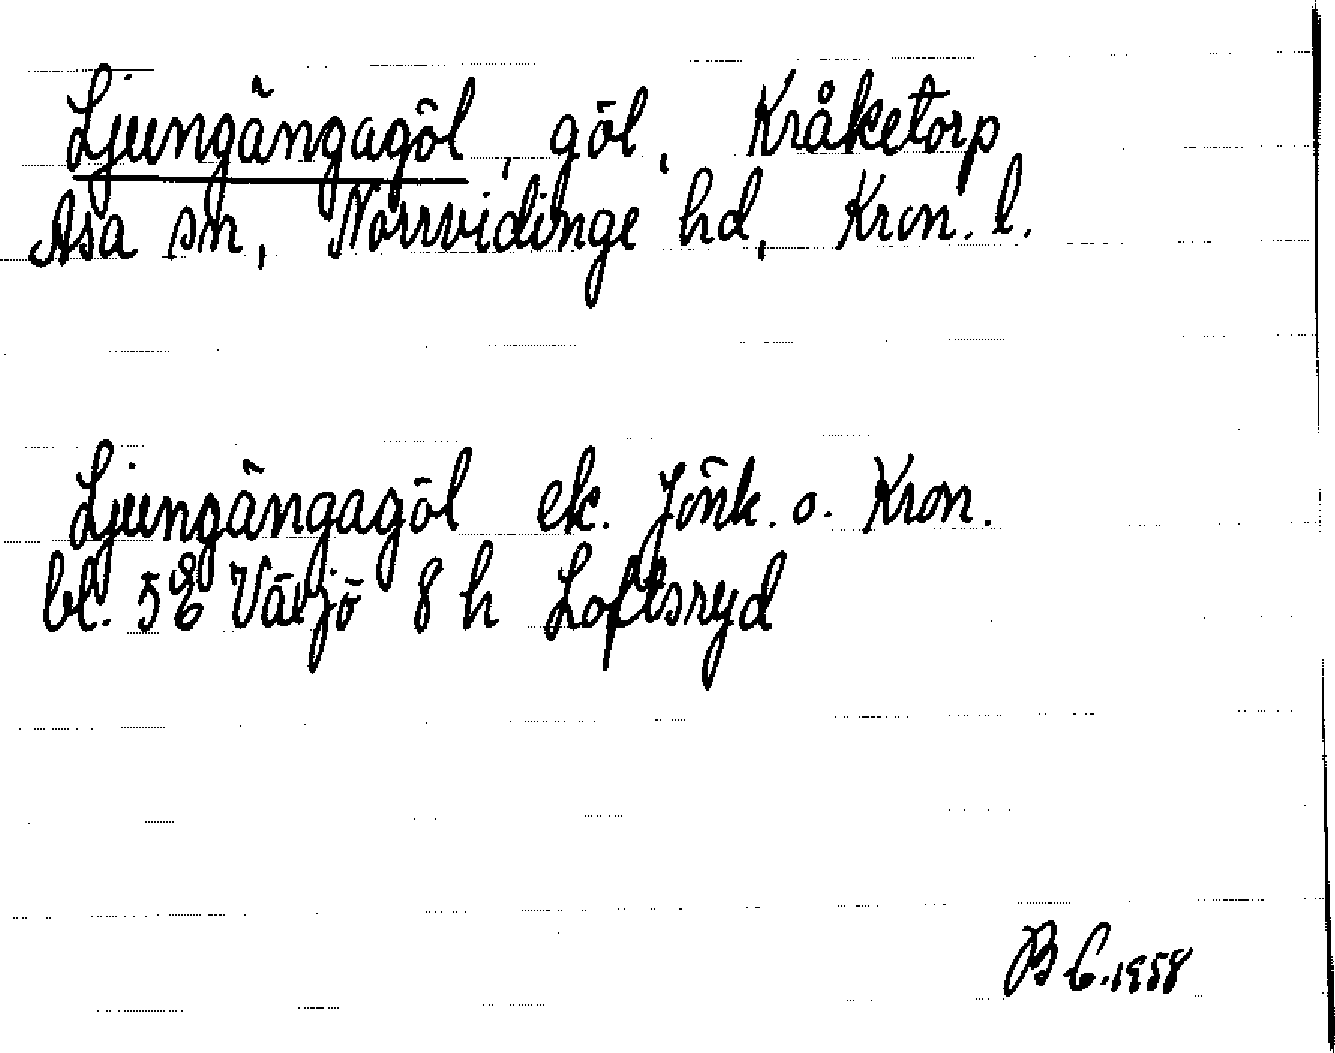 Ljungängagöl, göl, Kråketorp
Asa sn, Norrvidinge hd, Kron. l.
Ljungängagöl ek. Jönk. o. Kron.
bl. 5E Växjö 8 h Loftsryd
B C. 1958